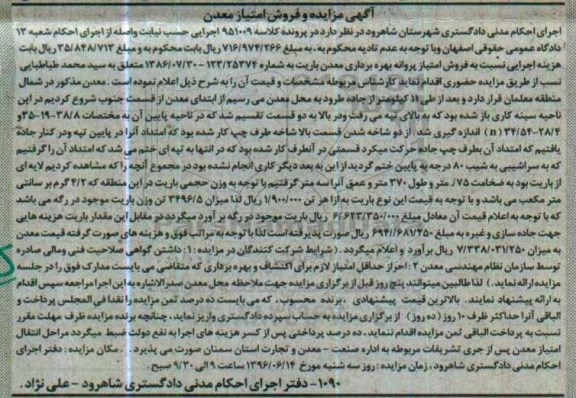 آگهی مزایده و فروش امتیاز معدن
اجرای احکام مدنی دادگستری شهرستان شاهرود در نظر دارد در پرونده کلاسه ۹۵۱۰۰۹ اجرایی حسب نیابت واصله از اجرای احکام شعبه ۱۳
دادگاه عمومی حقوقی اصفهان و با توجه به عدم تادیه محکوم به، به مبلغ ۷۱۶/۹۷۴/۲۶۶ ریال بابت محکوم به و مبلغ ۳۵/۸۴۸/۷۱۳ ریال بابت
هزینه اجرایی نسبت به فروش امتیاز پروانه بهره برداری معدن باریت به شماره ۱۲۳/۲۵۳۷۴ – ۱۳۸۶/۰۷/۳۰ متعلق به سید محمد طباطبایی
نسب از طریق مزایده حضوری اقدام نماید کارشناس مربوطه مشخصات و قیمت آن را به شرح ذیل اعلام نموده است . معدن مذکور در شمال
منطقه معلمان قرار دارد و بعد از طی ۱۱ کیلومتر از جاده طرود به محل معدن می رسیم از ابتدای معدن از قسمت جنوب شروع کردیم در این
ناحیه سینه کاری باز شده بود که به بالای تپه می رفت ودر بالا به دو قسمت تقسیم شد که در ناحیه پایین آن به مختصات ۳۸/۸-۱۹-۳۵ و
۲۸/۴-۳۴/۵۴ (n) اندازه گیری شد. از دو شاخه شدن قسمت بالا شاخه طرف چپ کار شده بود که امتداد آنرا در پایین تپه ودر کنار جاده
یافتیم که امتداد آن بطرف چپ جاده حرکت میکرد قسمتی در آنطرف کار شده بود که در انتها به تپه ای ختم می شد که امتداد آن را گرفتیم
که به سراشیبی به شیب ۸۰ درجه به پایین ختم گردید از این به بعد دیگر کاری انجام نشده بود در مجموع آنچه را که مشاهده کردیم لایه ای
از باریت بود به ضخامت ۷۵/. متر و طول ۳۷۰ متر و عمق آنرا سه متر گرفتیم با توجه به وزن حجمی باریت در این منطقه که ۴/۲ گرم بر سانتی
متر مکعب می باشد و با توجه به قیمت این نوع باریت به ازا هر تن ۱/۹۰۰/۰۰۰ ریال لذا میزان ۳۴۹۶/۵ تن وزن باریت موجود در رگه می باشد
که با توجه به اعلام قیمت آن معادل مبلغ ۶/۶۴۳/۳۵۰/۰۰۰ ریال باریت موجود در رگه بر آورد میگردد در مقابل این مقدار باریت هزینه هایی
جهت جاده سازی و غیره به مبلغ ۶۹۴/۶۸۷/۲۵۰ ریال صورت پذیرفته است لذا با توجه به مراتب فوق و هزینه های صورت گرفته قیمت معدن
به میزان ۷/۳۳۸/۰۳۱/۲۵۰ ریال برآورد و اعلام میگردد . (شرایط شرکت کنندگان در مزایده : ۱: داشتن گواهی صلاحیت فنی ومالی صادره
توسط سازمان نظام مهندسی معدن ۲ : احراز حداقل امتیاز لازم برای اکتشاف و بهره برداری که متقاضی می بایست مدارک فوق را در جلسه
مزایده ارائه نماید.) لذا طالبین میتوانند پنج روز قبل از برگزاری مزایده جهت ملاحظه محل معدن صدرالاشاره به این اجرا مراجعه سپس اقدام
به ارائه پیشنهاد نمایند. بالاترین قیمت پیشنهادی ، برنده محسوب ، که می بایست ده درصد ثمن مزایده را نقدا فی المجلس پرداخت و
الباقی آنرا حداکثر ظرف ۱۰ روز (ده روز) از برگزاری مزایده به حساب سپرده دادگستری واریز نماید، چنانچه برنده مزایده ظرف مهلت مقرر
نسبت به پرداخت الباقی ثمن مزایده اقدام ننماید، ده درصد پرداختی پس از کسر هزینه های اجرا به نفع دولت ضبط میگردد مراحل انتقال
امتیاز معدن پس از جری تشریفات مربوطه به اداره صنعت – معدن و تجارت استان سمنان صورت می پذیرد . . مکان مزایده : دفتر اجرای
احکام مدنی دادگستری شاهرود ، زمان مزایده : روز سه شنبه مورخ ۱۳۹۶/۰۶/۱۴ ساعت ۹ الی ۹/۳۰ صبح .
۱۰۹۰ – دفتر اجرای احکام مدنی دادگستری شاهرود – علی نژاد .